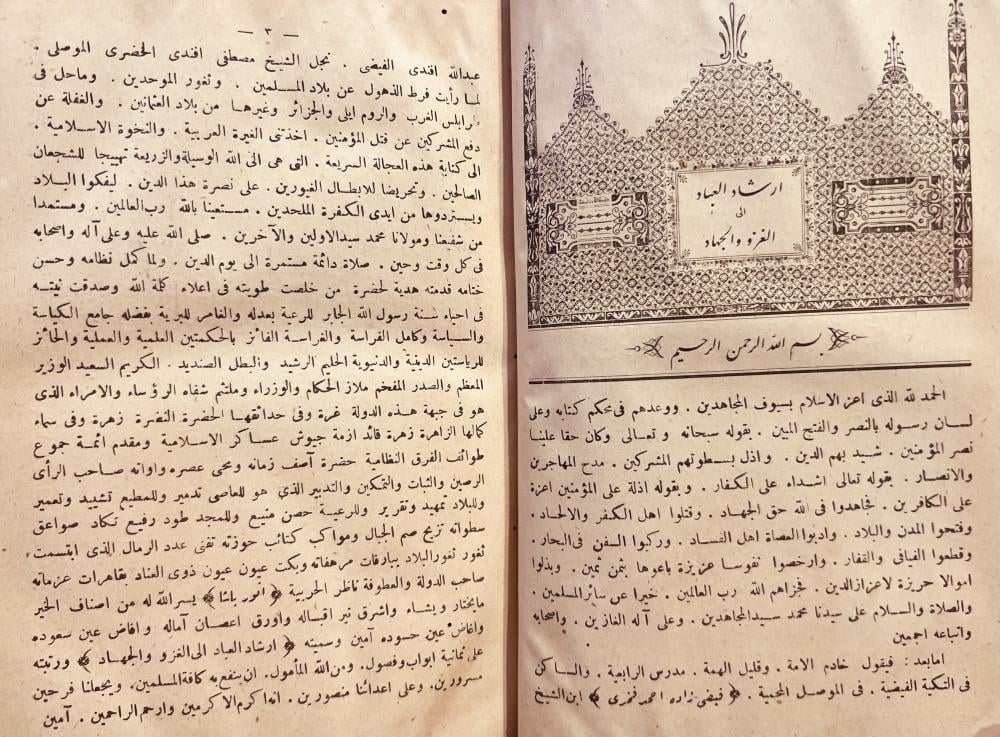 ارشاد العباد
الى
الغزو والجهاد
بسم الله الرحمن الرحيم
الحمد لله الذى اعز الاسلام بسيوف المجاهدين . ووعدهم فى محكم كتابه وعلى
لسان رسوله بالنصر والفتح المبين . بقوله سبحانه وتعالى وكان حقا علينا
نصر المؤمنين . شيد بهم الدين . واذل بسطوتهم المشركين . مدح المهاجرين
والانصار . بقوله تعالى اشداء على الكفار . وبقوله اذلة على المؤمنين اعزة
على الكافرين . فجاهدوا فى الله حق الجهاد . وقتلوا اهل الكفر والالحاد .
وفتحوا المدن والبلاد . وادبوا العصاة اهل الفساد . وركبوا السفن فى البحار .
وقطعوا الفيافى والقفار . وارخصوا نفوسا عزيزة باعوها بثمن ثمين . وبذلوا
اموالا حريزة لاعزاز الدين . فجزاهم الله رب العالمين . خيرا عن سائر المسلمين .
والصلاة والسلام على سيدنا محمد سيد المجاهدين . وعلى آله الغازين . واصحابه
واتباعه اجمعين
امابعد : فيقول خادم الامة . وقليل الهمة . مدرس الرابعية . والساكن
فى التكية الفيضية . فى الموصل المحمية . ﴿ فيضى زاده احمد فخرى ﴾ ابن الشيخ
— ٣ —
عبدالله افندى الفيضى . نجل الشيخ مصطفى افندى الخضرى الموصلى .
لما رأيت فرط الذهول عن بلاد المسلمين . وثغور الموحدين . وماحل فى
طرابلس الغرب والروم ايلى والجزائر وغيرها من بلاد العثمانين . والغفلة عن
دفع المشركين عن قتل المؤمنين . اخذتنى الغيرة العربية . والنخوة الاسلامية .
الى كتابة هذه العجالة السريعة . التى هى الى الله الوسيلة والزريعة تهييجا للشجعان
الصالحين . وتحريضا للابطال الغيورين . على نصرة هذا الدين . ليفكوا البلاد
ويستردوها من ايدى الكفرة الملحدين . مستعينا بالله رب العالمين . ومستمدا
من شفيعنا ومولانا محمد سيد الاولين والآخرين . صلى الله عليه وعلى آله واصحابه
فى كل وقت وحين . صلاة دائمة مستمرة الى يوم الدين . ولما كمل نظامه وحسن
ختامه قدمته هدية لحضرة من خلصت طويته فى اعلاء كلمة الله وصدقت نيته
فى احياء سنة رسول الله الجابر للرعية بعدله والغامر للبرية بفضله جامع الكياسة
والسياسة وكامل الفراسة والفراسة الفائز بالحكمتين العلمية والعملية والحائز
للرياستين الدينية والدنيوية الحليم الرشيد والبطل الصنديد . الكريم السعيد الوزير
المعظم والصدر المفخم ملاز الحكام والوزراء وملتثم شفاه الرؤساء والامراء الذى
هو فى جبهة هذه الدولة غرة وفى حدائقها الحضرة النضرة زهرة وفى سماء
كمالها الزاهرة زهرة قائد ازمة جيوش عساكر الاسلامية ومقدم ائمة جموع
طوائف الفرق النظامية حضرة آصف زمانه ومحى عصره واوانه صاحب الرأى
الرصين والثبات والتمكين والتدبير الذي هو للعاصى تدمير وللمطيع تشييد وتعمير
وللبلاد تمهيد وتقرير وللرعية حصن منيع وللمجد طود رفيع تكاد صواعق
سطواته تزيح صم الجبال ومواكب كتائب حوزته تفنى عدد الرمال الذى ابتسمت
ثغور ثغور البلاد ببارقات مرهفاته وبكت عيون عيون ذوى العناد بقاهرات عزماته
صاحب الدولة والعطوفة ناظر الحربية ﴿ انور باشا ﴾ يسر الله له من اصناف الخير
مايختار ويشاء واشرق نير اقباله واورق اغصان آماله وافاض عين سعوده
واغاض عين حسوده آمين وسميته ﴿ ارشاد العباد الى الغزو والجهاد ﴾ ورتبته
على ثمانية ابواب وفصول . ومن الله المأمول . ان ينفع به كافة المسلمين . ويجعلنا فرحين
مسرورين . وعلى اعدائنا منصورين . انه اكرم الاكرمين وارحم الراحمين . آمين